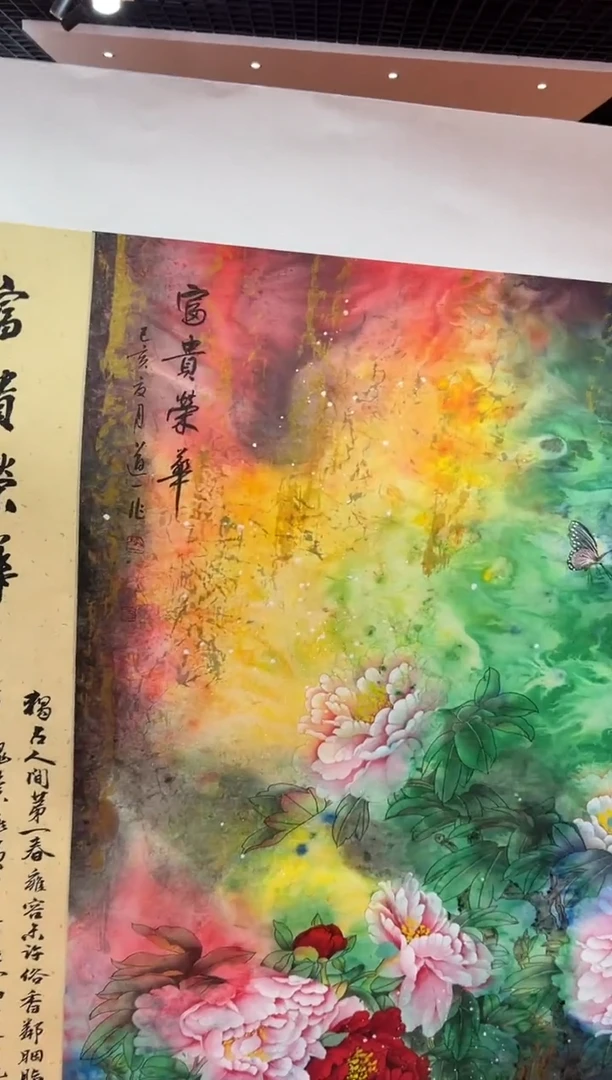 富貴榮華
己亥夏月道一作
富貴榮華
獨占人間第一春雍容未許俗香鄰胭脂